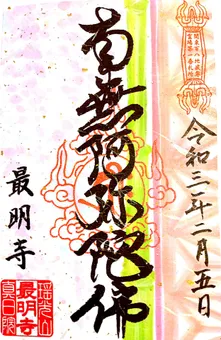 令和三年二月五日
南無阿弥陀佛
最明寺
瑶光山
最明寺